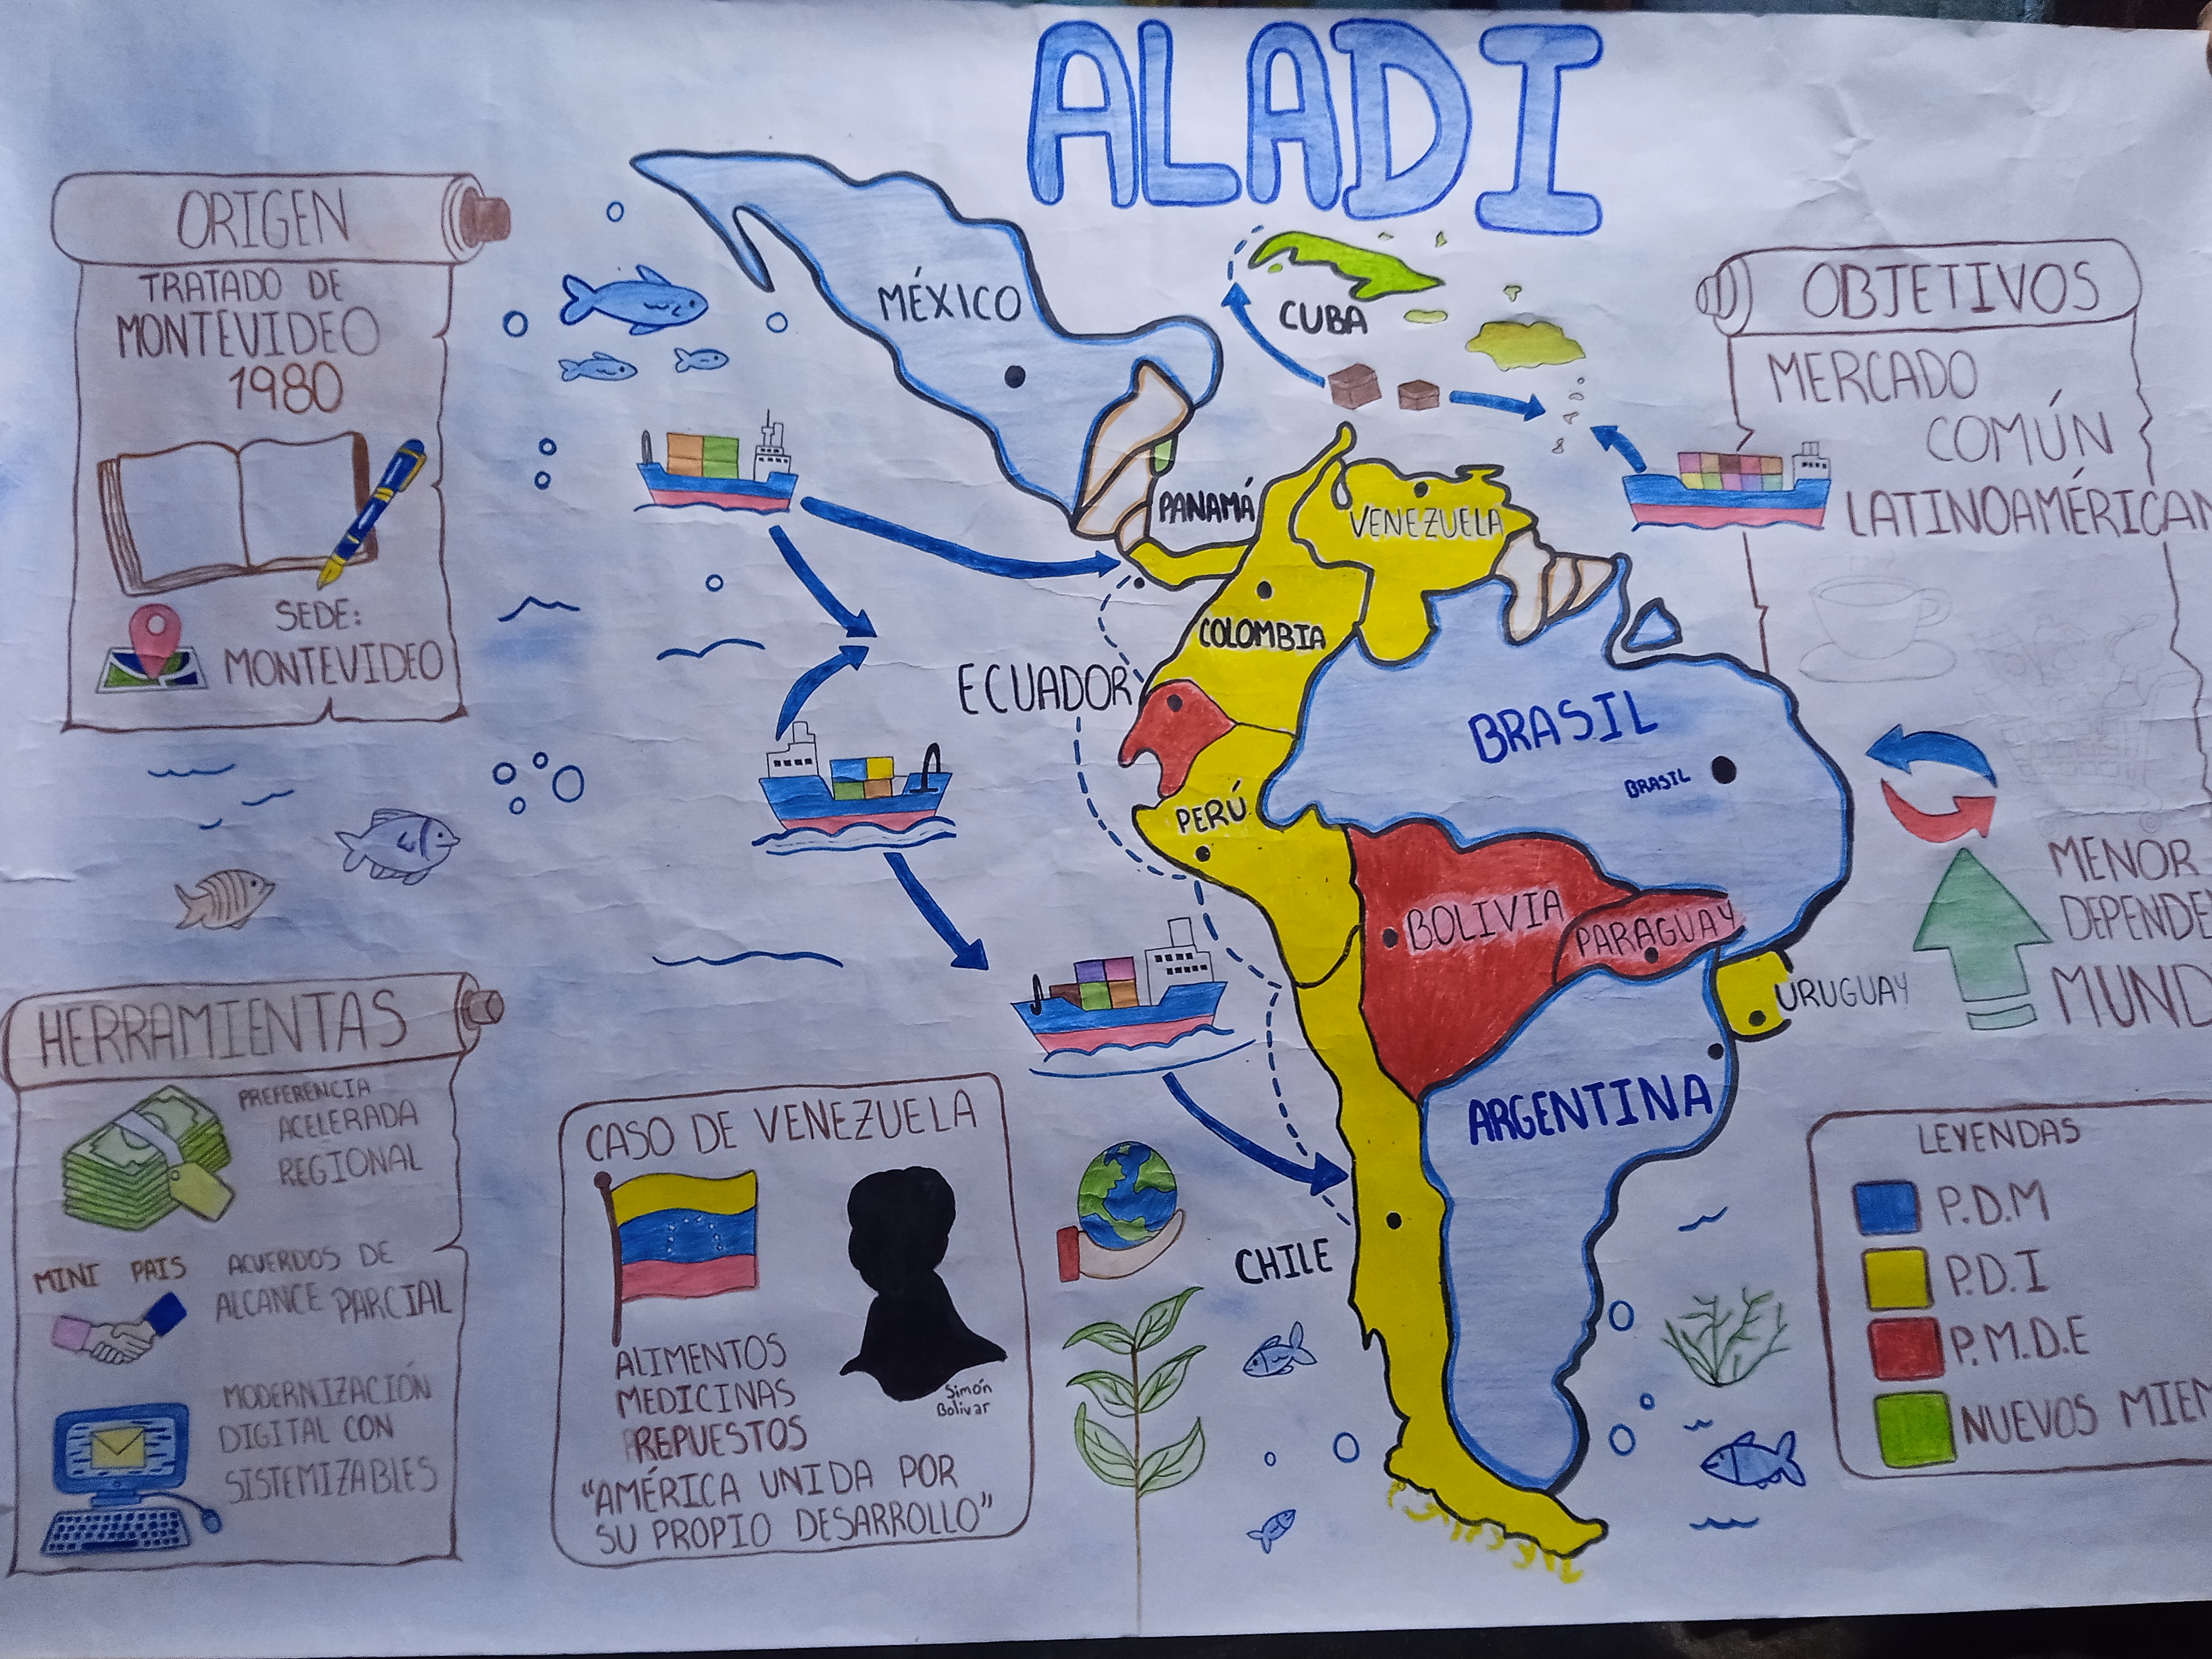 ALADI
ORIGEN
TRATADO DE
MONTEVIDEO
1980
SEDE:
MONTEVIDEO
HERRAMIENTAS
PREFERENCIA
ACELERADA
REGIONAL
MINI PAIS
ACUERDOS DE
ALCANCE PARCIAL
MODERNIZACIÓN
DIGITAL CON
SISTEMIZABLES
CASO DE VENEZUELA
Simón
Bolivar
ALIMENTOS
MEDICINAS
REPUESTOS
"AMÉRICA UNIDA POR
SU PROPIO DESARROLLO"
MÉXICO
CUBA
PANAMÁ
VENEZUELA
COLOMBIA
ECUADOR
BRASIL
BRASIL
PERÚ
BOLIVIA
PARAGUAY
URUGUAY
ARGENTINA
CHILE
OBJETIVOS
MERCADO
COMÚN
LATINOAMÉRICAN
MENOR
DEPENDE
MUND
LEYENDAS
P.D.M
P.D.I
P.M.D.E
NUEVOS MIEM